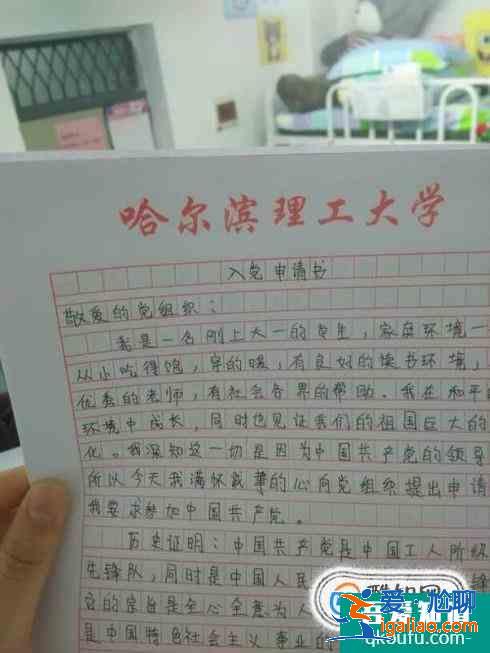 哈尔滨理工大学
入党申请书
敬爱的党组织：
我是一名刚上大一的专生，家庭环境一
从小吃得饱，穿的暖，有良好的读书环境，
优秀的老师，有社会各界的帮助。我在和平
环境中成长，同时也见证我们的祖国巨大的
化。我深知这一切是因为中国共产党的领导
所以今天我满怀的心向党组织提出申请
我要求参加中国共产党。
历史证明：中国共产党是中国工人阶级
先锋队，同时是中国人民
的宗旨是全心全意为人
是中国特色社会主义事业的
爱尬聊
jiangaliao.com
qk9ufu.com